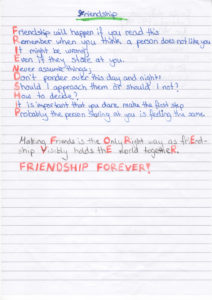 Friendship
Friendship will happen if you read this
Remember when you think a person does not like you
It might be wrong!
Even if they stare at you.
Never assume things;
Don't ponder over this day and night
Should I approach them or should I not?
How to decide?
It is important that you dare make the first step
Probably the person staring at you is feeling the same
Making Friends is the Only Right way as friEnd-
ship Visibly holds thE world togetheR.
FRIENDSHIP FOREVER!